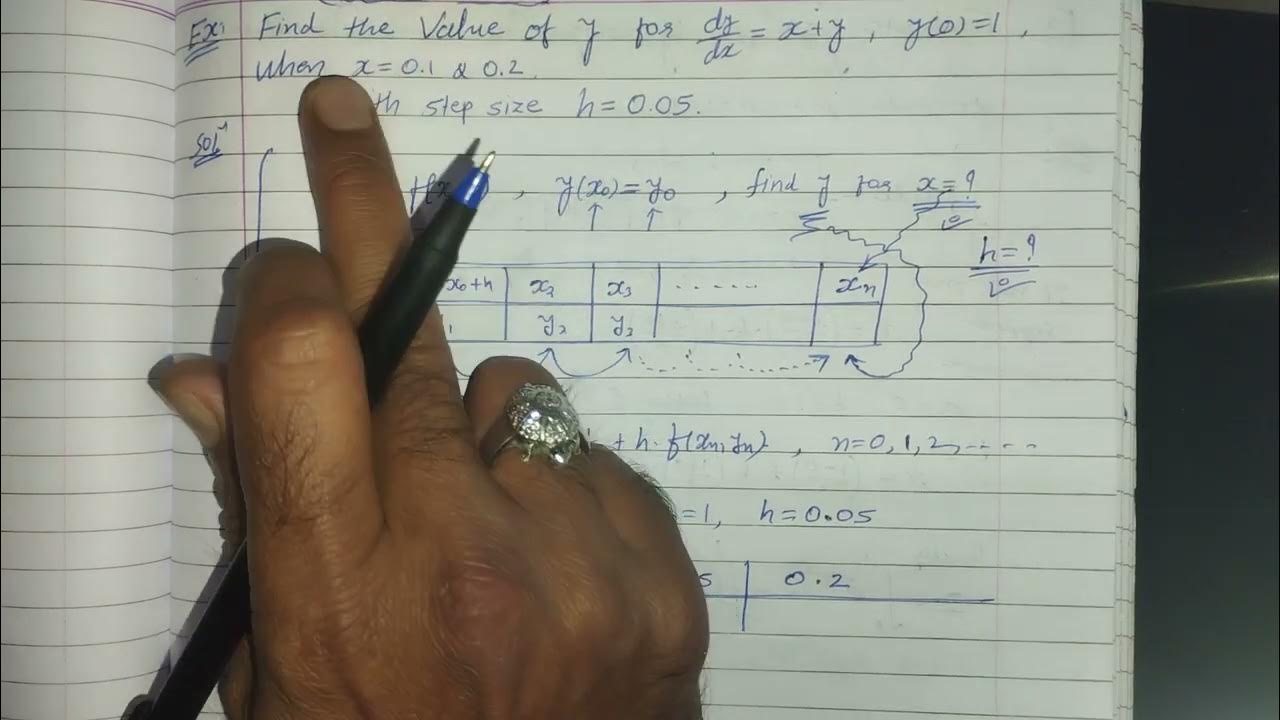 Ex: Find the Value of y for dy/dx = x+y, y(0)=1,
When x = 0.1 & 0.2
th step size h = 0.05.
Sol^n
f(x , y(x0)=y0 , find y for x=?
h=?
x0+h x2 x3 ...... xn
1 y2 y3
+ h.f(xn,yn) , n=0,1,2,.....
=1, h=0.05
5 0.2